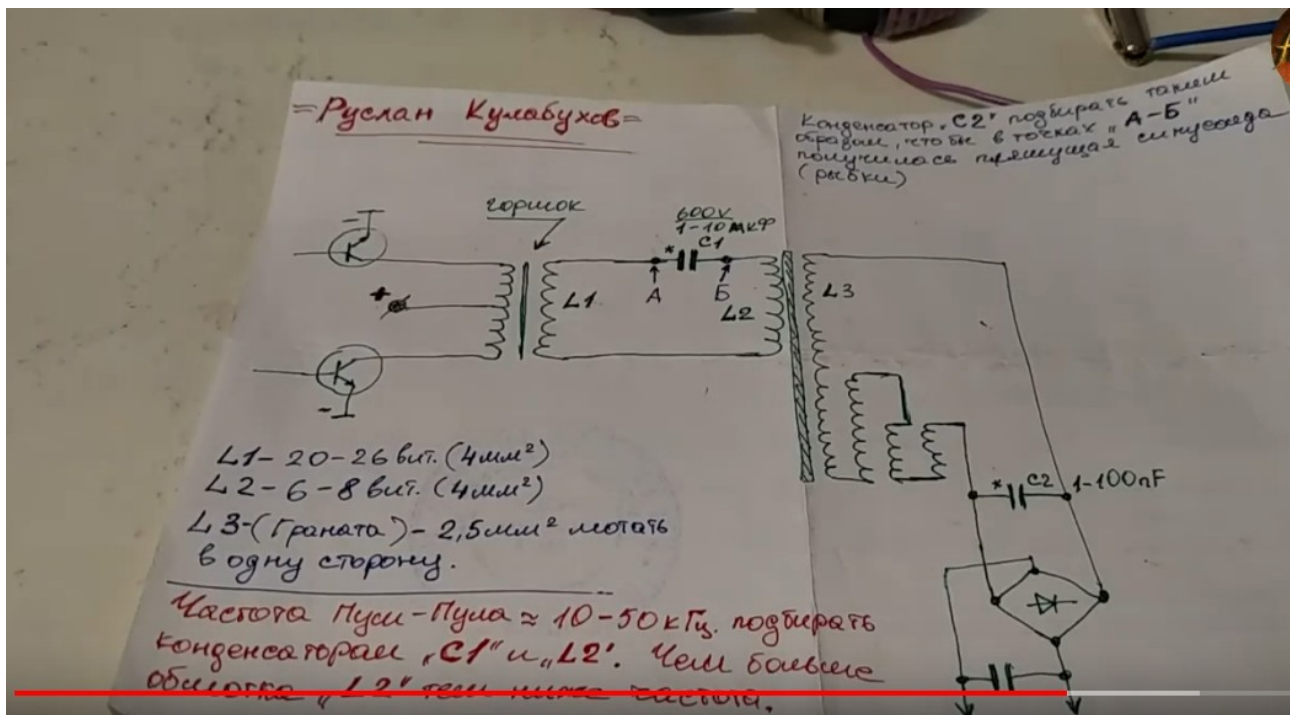 =Руслан Кулабухов=
Конденсатор „С2" подбирать таким
образом, чтобы в точках „А-Б"
получилась прямущая синусоида
(рыбки)
горшок
600V
1-10 мкФ
* С1
А
Б
L1
L2
L3
+
-
-
* С2
1-100nF
L1-20-26 вит. (4мм²)
L2-6-8 вит. (4мм²)
L3-(Граната)-2,5мм² мотать
в одну сторону.
Частота Пуш-Пула ≈ 10-50 кГц. подбирать
конденсаторам „С1" и „L2". Чем больше
обмотка „L2" тем ниже частота.